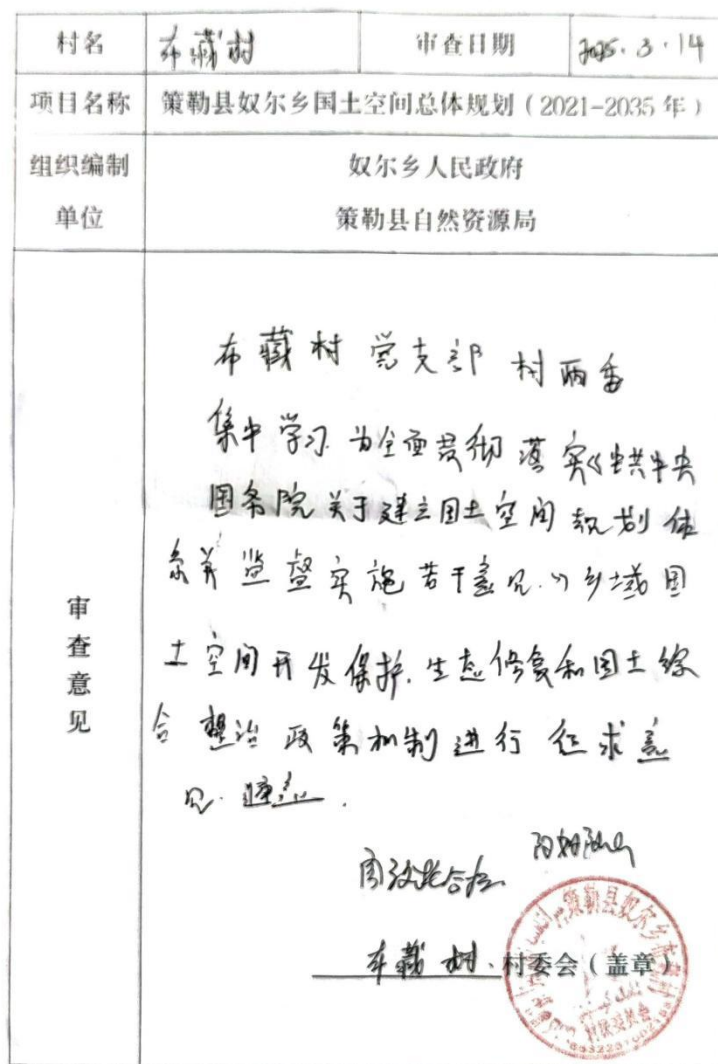 村名 布藏村 审查日期 2025.3.14
项目名称 策勒县奴尔乡国土空间总体规划（2021-2035年）
组织编制单位 奴尔乡人民政府
策勒县自然资源局
审查意见
布藏村党支部 村两委
集中学习.为全面贯彻落实《中共中央
国务院关于建立国土空间规划体
系并监督实施若干意见.》乡域国
土空间开发保护.生态修复和国土综
合整治政策机制进行征求意
见.同意.
布藏村.村委会（盖章）
策勒县奴尔乡布藏村
村民委员会